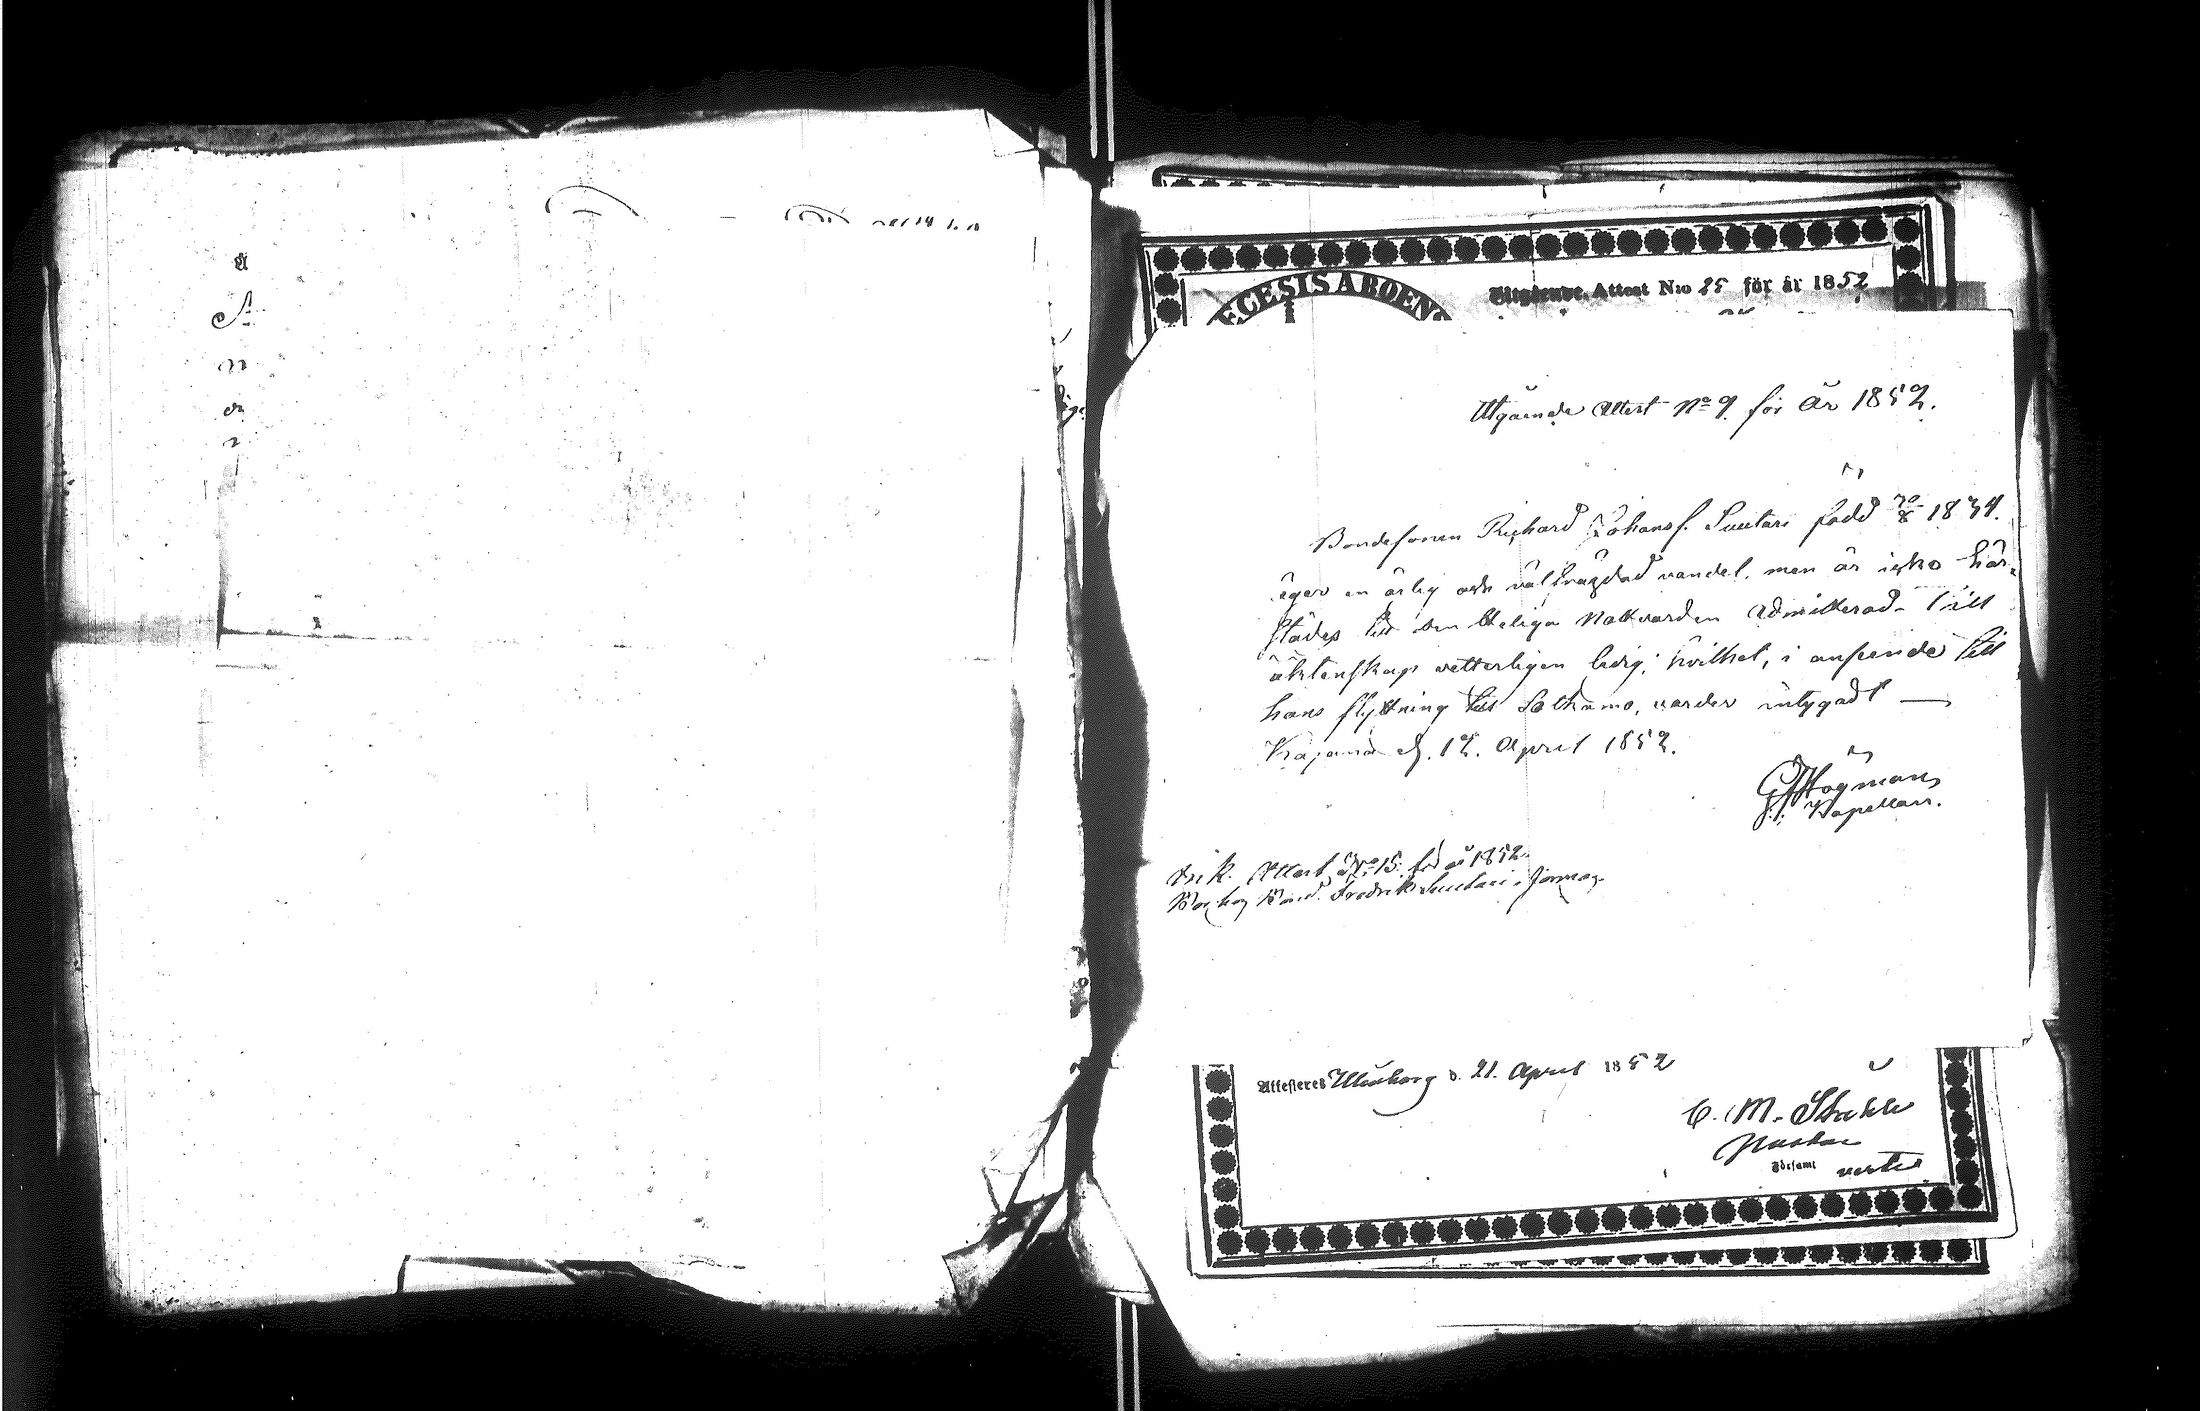 ECESIS ABOENS
Utgående Attest N:o 25 för år 1852
Utgående Attest No 9. för År 1852.
Bondesonen Richard Johanss. Suutari född 30/8 1834.
äger en ärlig och välfrägdad vandel, men är icke här-
städes till den Heliga Nattvarden admitterad. Till
äktenskap vetterligen ledig; hvilket, i anseende till
hans flyttning till Sotkamo, varder intygadt —
Kajana d. 12. April 1852.
Högman
Kapellan.
Ink. Attest No 15. för år 1852.
Bond. Fredrik Suutari i
Attesteras Uleåborg d. 21. April 1852
C. M. Stahle
Pastor
Församl